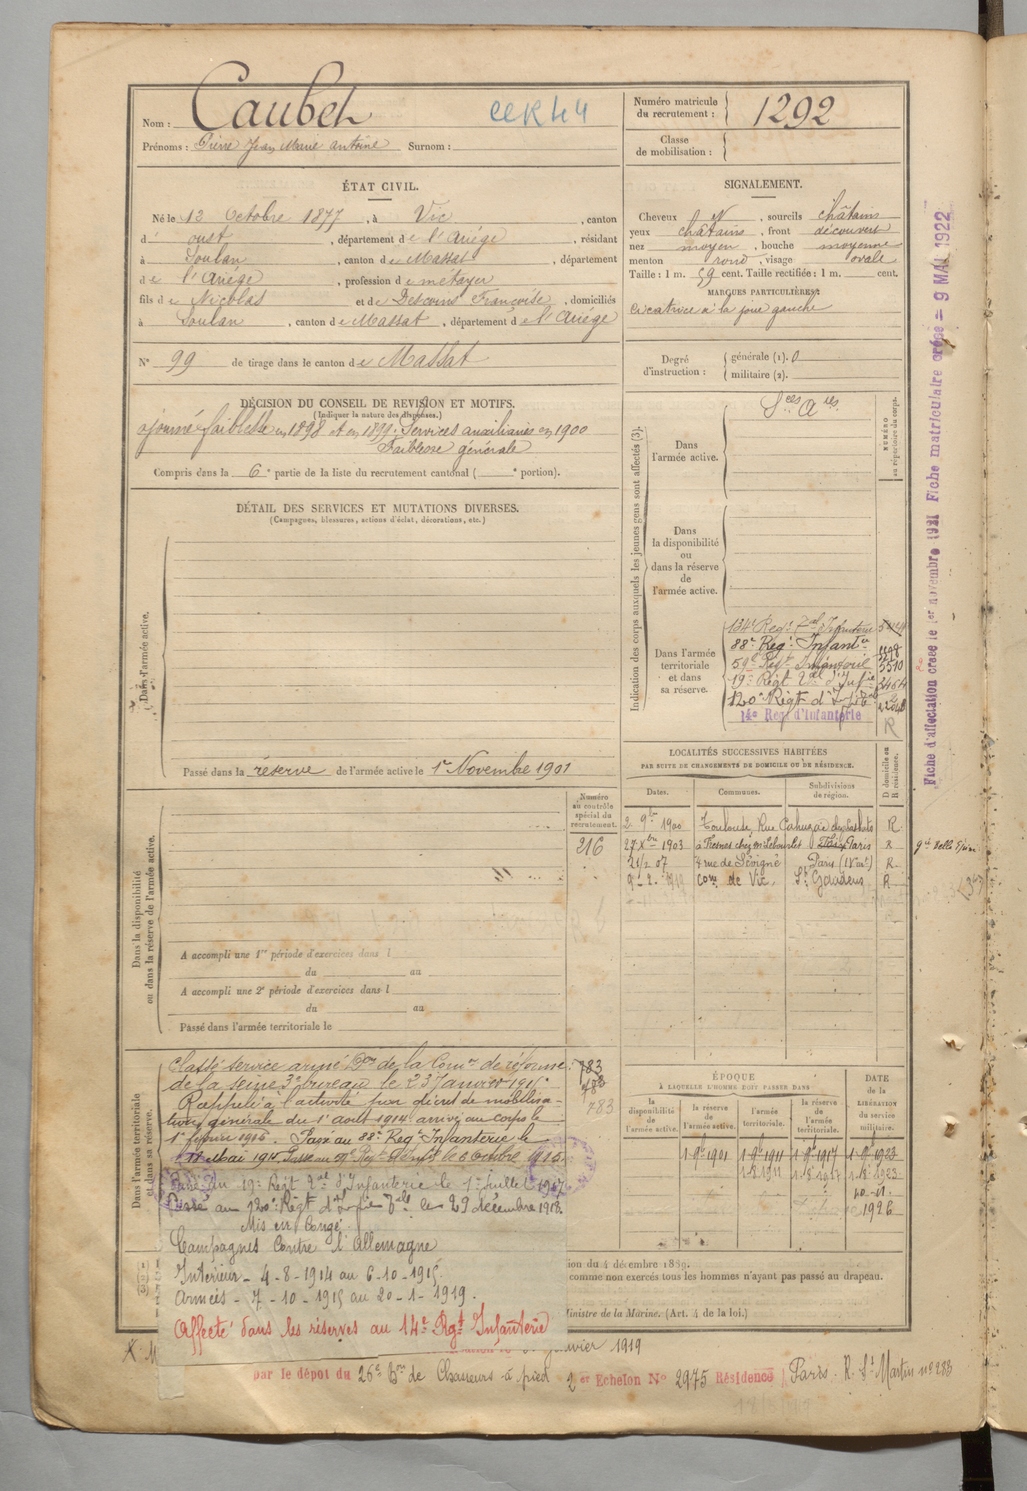 Nom : Caubet
CCR 44
Prénoms : Pierre Jean Marie Antoine Surnom :
Numéro matricule du recrutement : 1292
Classe de mobilisation :
ÉTAT CIVIL.
Né le 12 Octobre 1877, à Vic, canton
d' oust, département de l'Ariège, résidant
à Soulan, canton de Massat, département
de l'Ariège, profession de métayer
fils de Nicolas et de Descoins Françoise, domiciliés
à Soulan, canton de Massat, département de l'Ariège
N° 99 de tirage dans le canton de Massat
SIGNALEMENT.
Cheveux N, sourcils châtains
yeux châtains, front découvert
nez moyen, bouche moyenne
menton rond, visage ovale
Taille : 1 m. 59 cent. Taille rectifiée : 1 m. cent.
MARQUES PARTICULIÈRES :
Cicatrice à la joue gauche
Degré d'instruction : générale (1). 0
militaire (2).
DÉCISION DU CONSEIL DE REVISION ET MOTIFS.
(Indiquer la nature des dispenses.)
ajourné faiblesse en 1898 et en 1899. Services auxiliaires en 1900
Faiblesse générale
Compris dans la 6e partie de la liste du recrutement cantonal ( e portion).
DÉTAIL DES SERVICES ET MUTATIONS DIVERSES.
(Campagnes, blessures, actions d'éclat, décorations, etc.)
Dans l'armée active.
Passé dans la réserve de l'armée active le 1er Novembre 1901
Indication des corps auxquels les jeunes gens sont affectés (3).
NUMÉRO au répertoire du corps.
Sces Ares
Dans l'armée active.
Dans la disponibilité ou dans la réserve de l'armée active.
Dans l'armée territoriale et dans sa réserve.
134e Regt Tal Infanterie
88e Regt Infantie
59e Regt Infanterie 5510
19e Régt Tal d'Infie 3464
120e Régt d'Infie
14e Regt d'Infanterie
R
Fiche d'affectation créée le 1er novembre 1921 Fiche matriculaire créée = 9 MAI 1922
LOCALITÉS SUCCESSIVES HABITÉES
PAR SUITE DE CHANGEMENTS DE DOMICILE OU DE RÉSIDENCE.
Dates. Communes. Subdivisions de région. D domicile ou R résidence.
2 9bre 1900 Toulouse, Rue Cahuzac R
27 Xbre 1903 à Fresnes chez Paris R
21/2 07 4 rue de Sévigné Paris (IVe art) R
9-2-1919 Come de Vic St Gaudens R
Numéro au contrôle spécial du recrutement.
216
Dans la disponibilité ou dans la réserve de l'armée active.
A accompli une 1re période d'exercices dans l
du au
A accompli une 2e période d'exercices dans l
du au
Passé dans l'armée territoriale le
Dans l'armée territoriale et dans sa réserve.
Classé service armé Don de la Comon de réforme
de la seine 3e bureau le 23 Janvier 1915.
Rappelé à l'activité par décret de mobilisa-
tion générale du 1er août 1914 arrivé au corps le
1er février 1915. Passé au 88e Reg Infanterie le
11 Mai 1915 Passé au 59e Regt d'Infie le 6 Octobre 1915.
Passé au 19e Régt Tal d'Infanterie le 1er Juillet 1917
Passé au 120e Régt d'Infie Tale le 29 décembre 1918.
Mis en Congé
Campagnes contre l'Allemagne
Intérieur - 4-8-1914 au 6-10-1915.
Armées - 7-10-1915 au 20-1-1919.
Affecté dans les réserves au 14e Rgt Infanterie
783
783
783
ÉPOQUE
À LAQUELLE L'HOMME DOIT PASSER DANS
la disponibilité de l'armée active. la réserve de l'armée active. l'armée territoriale. la réserve de l'armée territoriale. DATE de la LIBÉRATION du service militaire.
1 9e 1901 1 9e 1911 1 9e 1917 1 9e 1923
1.8.1911 1.8.1917 1.8.1923
10-11-1926
ion du 4 décembre 1889.
comme non exercés tous les hommes n'ayant pas passé au drapeau.
Ministre de la Marine. (Art. 4 de la loi.)
janvier 1919
par le dépôt du 26e Bon de Chasseurs à pied 2er Echelon N° 2975 Résidence Paris. R. St Martin n° 283